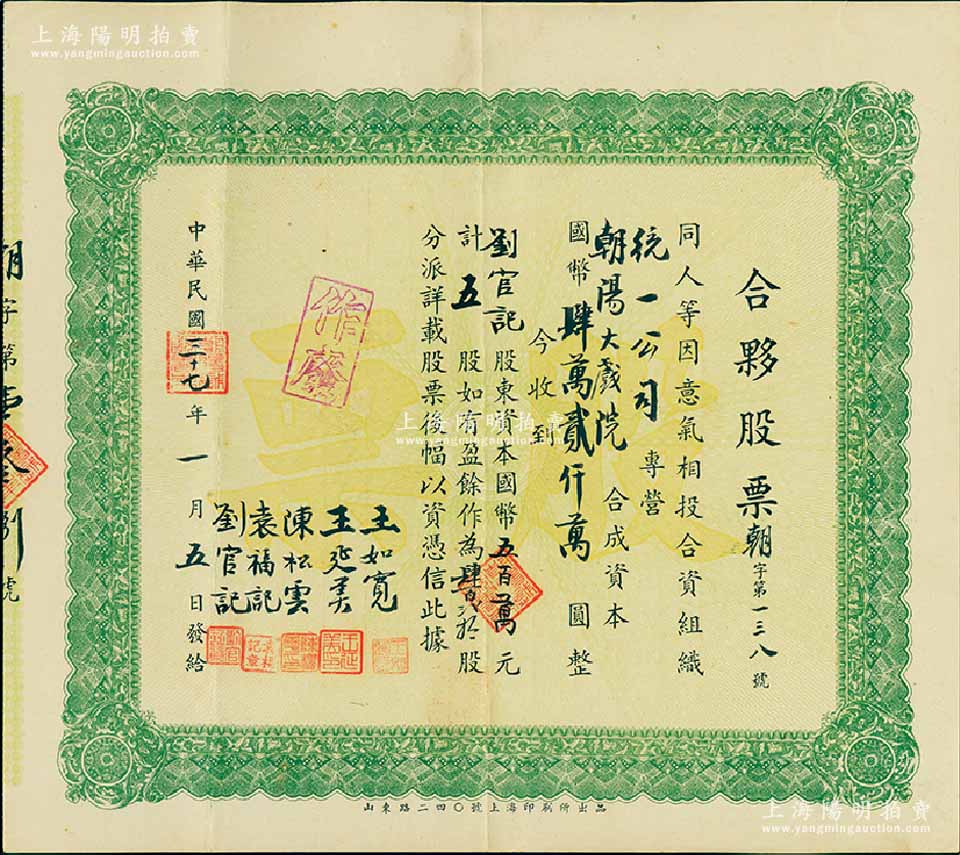 上海陽明拍賣
www.yangmingauction.com
合夥股票
朝字第一三八號
同人等因意氣相投合資組織
統一公司專營
朝陽大戲院合成資本
國幣肆萬貳仟萬圓整
今收到
劉官記股東資本國幣五百萬元
計五股如有盈餘作為肆百貳拾股
分派詳載股票後幅以資憑信此據
王如寬
王延美
陳松雲
袁福記
劉官記
中華民國三十七年一月五日發給
作廢
朝字第
號
上海陽明拍賣
www.yangmingauction.com
山東路二四〇號上海印刷所出品
上海陽明拍賣
www.yangmingauction.com